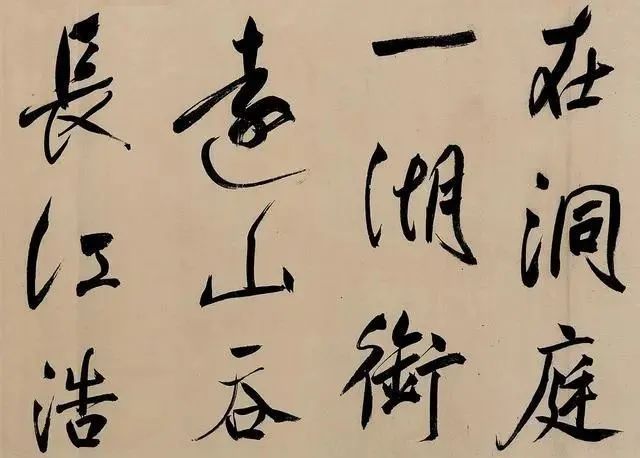 在洞庭
一湖銜
遠山吞
長江浩